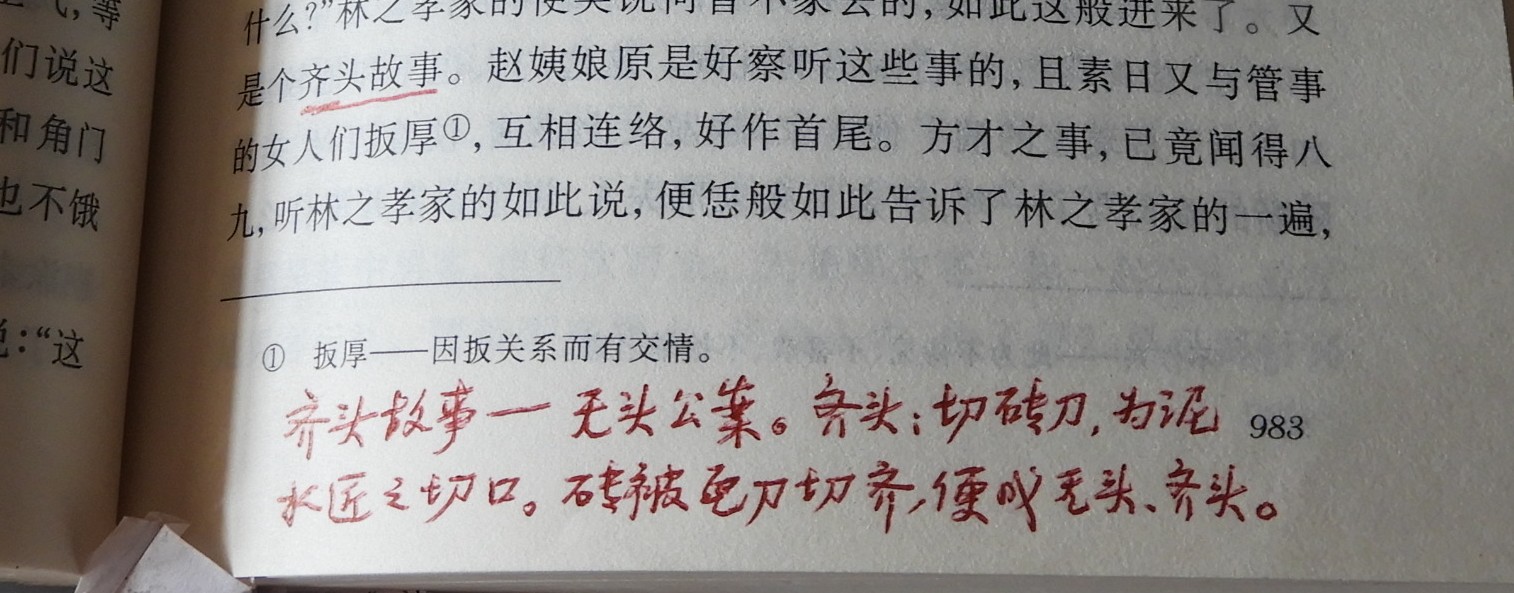 等
们说这
和角门
也不饿
说:“这
什么?”林之孝家的便笑说何曾不家去的,如此这般进来了。又
是个齐头故事。赵姨娘原是好察听这些事的,且素日又与管事
的女人们扳厚①,互相连络,好作首尾。方才之事,已竟闻得八
九,听林之孝家的如此说,便恁般如此告诉了林之孝家的一遍,
① 扳厚——因扳关系而有交情。
齐头故事—无头公案。齐头:切砖刀,为泥
983
水匠之切口。砖被砲刀切齐,便成无头、齐头。